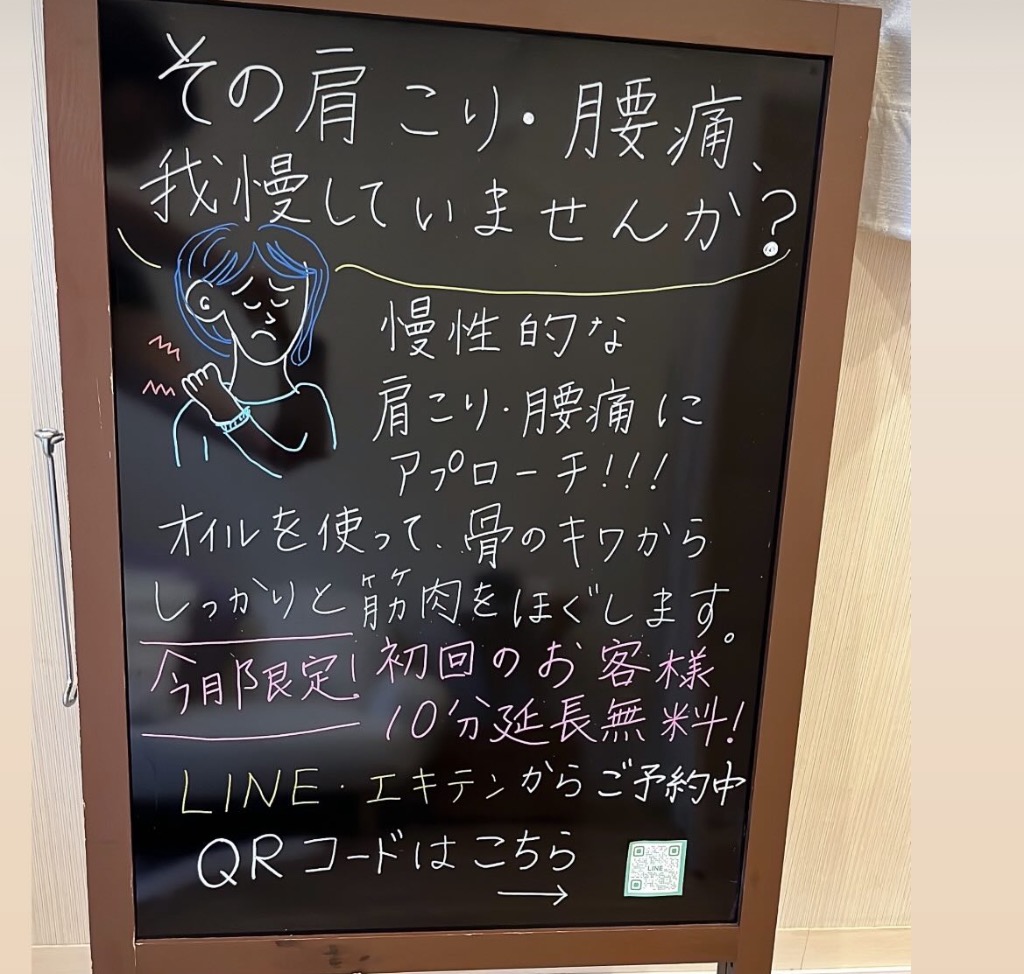 その肩こり・腰痛、
我慢していませんか?
慢性的な
肩こり・腰痛に
アプローチ!!!
オイルを使って、骨のキワから
しっかりと筋肉をほぐします。
今月限定! 初回のお客様
10分延長無料!
LINE・エキテンからご予約中
QRコードはこちら
→
LINE